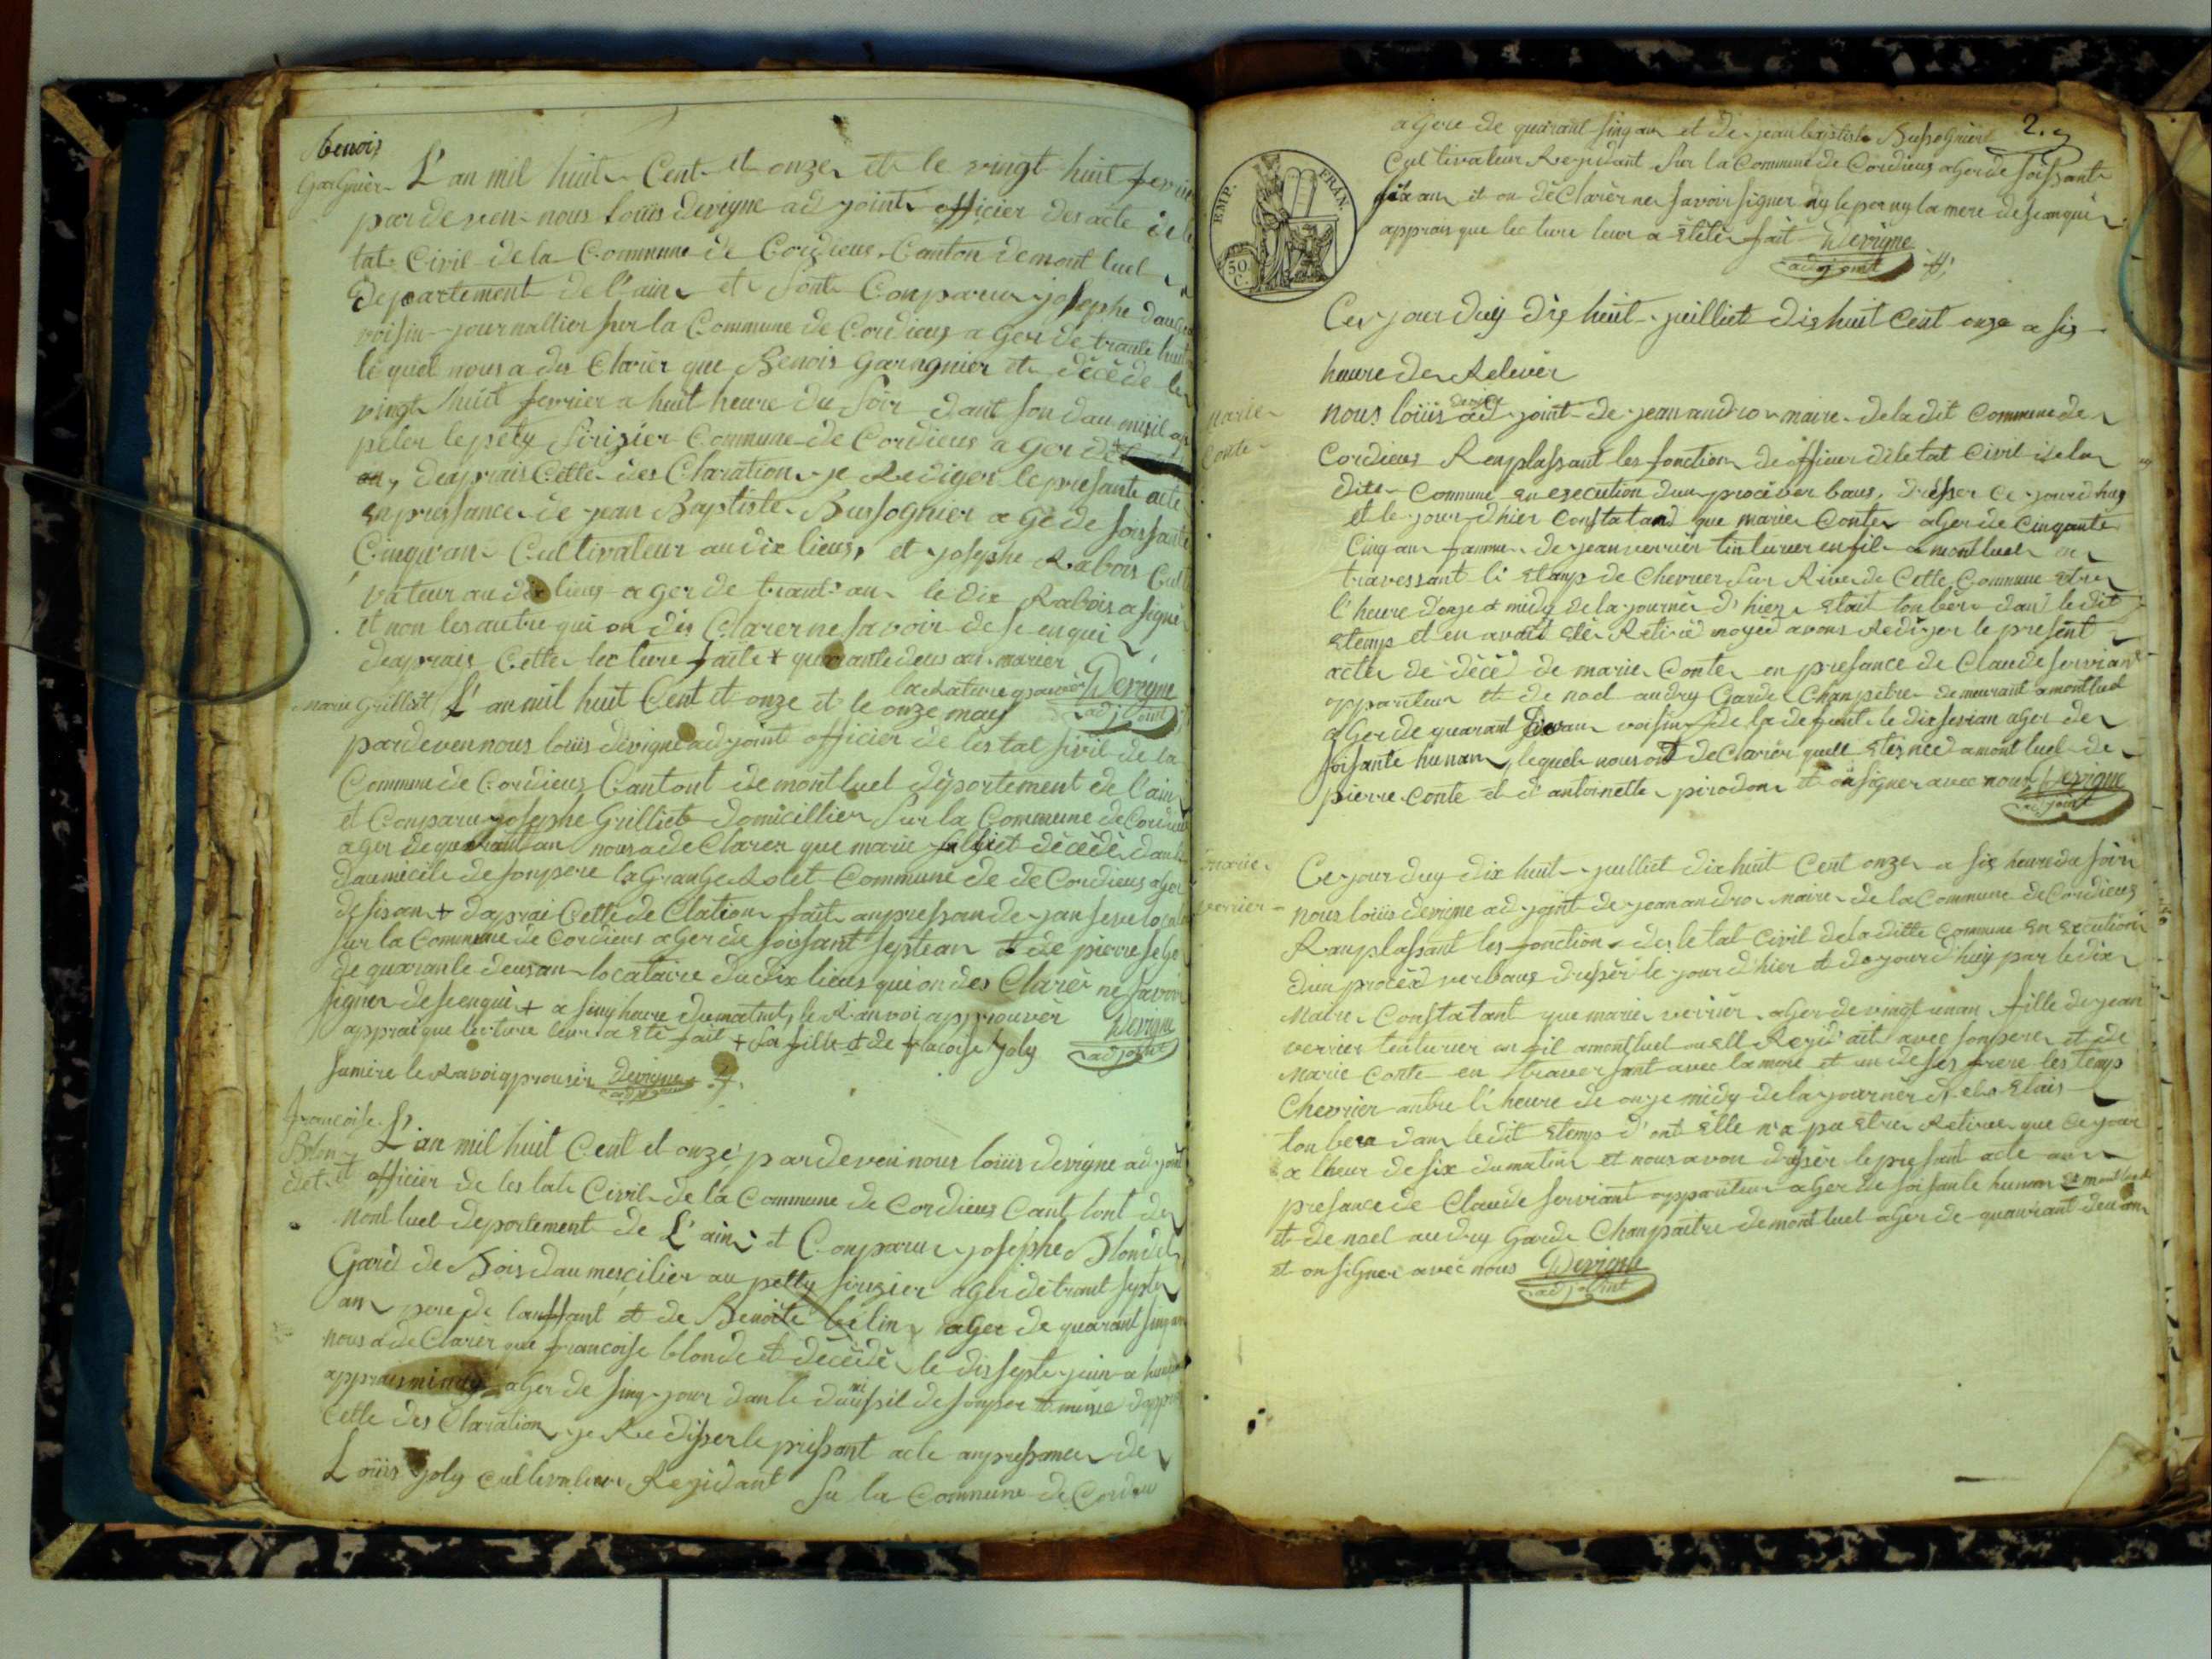 benois
Gargnier
L'an mil huit Cent et onze et le vingt huit fevrier
pardeven nous loüis devigne adjoint officier des acte de le
tat Civil de la Commune de Cordieus Canton de montluel
Departement de l'ain et sont Conparu josephe
voisin journallier sur la Commune de Cordieus ager de trante huit
le quel nous a des Clarer que Benois Garngnier et décédé le
vingt huit fevrier a huit heure du soir dant son daumisil ap
peler le pety sirizier Commune de Cordieus ager de
an, deaprais Cette des Claration je Rediger le presante acte
en pressance de jean Baptiste Bussognier agé de soissante
Cinqu'an Cultivateur au dix lieus, et josephe Rabois Cul
vateur au dix lieus ager de trant an le dix Rabois a signé
et non les autre qui on des Clarer ne savoir de se enqui
deaprais Cette lecture faite + quarante deus an marier
la Rature Devigne
adjoint
marie Grilliet
L'an mil huit Cent et onze et le onze may
pardeven nous loüis devigne adjoint officier de les tat sivil de la
Commune de Cordieus Cantont de montluel département de l'ain
et Conparu josephe Grilliet domicillier sur la Commune de Cordieus
ager de quarant an nous a de Clarer que marie décédé dan le
daumicile de son pere la Grange Rolet Commune de de Cordieus ager
de sis an + daprai Cette de Clation fait anpressan de jan
sur la Commune de Cordieus ager de soissant septean et de pierre
de quarante deus an locataire du dix lieus qui on des Claré ne savoir
signer de se enqui + a sinq heure du matint, le Ranvoi approuver
appraique lecture leur a été fait + sa fille et de joly
Devigne
adjoint
sa mere le Ravoi aprouver devigne
adjoint
francoise
Blon
det
L'an mil huit Cent et onze pardeven nous loüis devigne adjoint
et officier de les tate Civil de la Commune de Cordieus Cant tont de
montluel departement de L'ain et Conparu josephe Blondel
Gard de Bois daumescilier au petty sirizier ager de trant septe
an pere de lanffant et de Benoite belin ager de quarant sinq an
nous a de Clarer que francoise blonde et décédé le dis septe juin a
apprais ager de sinq jour dan le daumissil de son per et
Cette des Claration je Redisser le pressant acte anpressance de
Loüis Joly cultivateur Rezidant su la Commune de Cordieu
2.
agere de quarant sinq an et de jean baptiste Bussognier
Cultivateur Rezidant sur la Commune de Cordieus ager de soissante
six an et on déClarér ne savoir signer ny le per ny la mere de se enquir
apprais que lecture leur a étée fait Devigne
adjoint
EMP. FRAN.
50 C.
Ces jour duy dix huit juilliet dis huit Cent onze a sis
heure de Relever
marie
Conte
nous loüis devigne adjoint de jean andro maire de la dit Commune de
Cordieus Renplassant les fonction de officier de le tat Civil de la
dite Commune en execution dun procéver baus, dresser Ce jourdhuy
et le jour dhier Constatand que marie Conte ager de Cinqante
Cinq an famme de jean verrier tinturier en fil a montluel en
travessant li etanp de Chevrier sur Rive de Cette Commune etre
l'heure d'onze a midy de la journée d'hier etait tonbére dant le dit
etemps et en avait été Retiré noyéé avons Rediger le present
acte de décéd de marie Conte en presance de Claude servian
appariteur et de noel audry Garde Chanpétre demeurant a montluel
ager de quarant an voisin de la defunt le dix servian ager de
soisante hun an, lequel nous ont de Clarér quell etes née a montluel de
pierre Conte et d'antoinette pirodon et on signer avec nous Devigne
adjoint
marie
verrier
Ce jour duy dix huit juilliet dixhuit Cent onze a sis heure du soir
nous loüis devigne adjoint de jean andro maire de la Commune de Cordieus
Ranplassant les fonction de le tat Civil de la ditte Commune en execution
d'un procéd verbaus dressér le jour d'hier et de jour d'huy par le dix
Maire Constatant que marie verrier ager de vingt un an fille de jean
verrier tenturier en fil a montluel ou ell Rezid'ait avec son pere et de
Marie Conte en traversant avec la mere et un de ses frere les temp
Chevrier antre li heure de onze midy de la journér
tonbera dans le dit etemp d'ont elle n'a pu etre Retiree que Ce jour
a lheur de six du matin et nous avon dressér le presant acte an
presance de Claude serviant appariteur ager de soisante hun an
et de noel audry Garde Chanpaitre de montluel ager de quarant deu an
et on signer avéc nous Devigne
adjoint